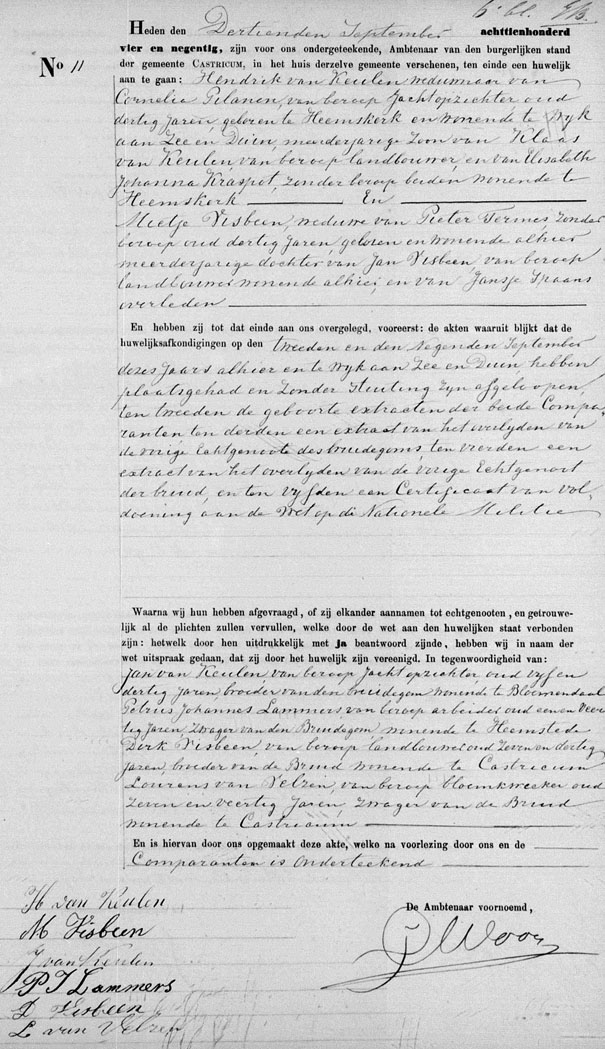 Heden den Dertienden September achttienhonderd
vier en negentig, zijn voor ons ondergeteekende, Ambtenaar van den burgerlijken stand
der gemeente CASTRICUM, in het huis derzelve gemeente verschenen, ten einde een huwelijk
No 11
aan te gaan: Hendrik van Keulen weduwnaar van
Cornelia Gelanen, van beroep Jachtopziehter, oud
dertig Jaren, geloren te Heemskerk en wonende te Wyk
aan Zee en Duin, meerderjarige Zoon van Klaas
van Keulen, van beroep landbouwer, en van Elisabeth
Johanna Kraspot, Zonder beroep beiden wonende te
Heemskerk En
Mietje Visbeen, weduwe van Pieter Termes Zonder
beroep oud dertig Jaren, geloren en wonende alhier
meerderjarige dochter van Jan Visbeen, van beroep
landbouwer wonende alhier, en van Jansje Spaans
overleden
En hebben zij tot dat einde aan ons overgelegd, vooreerst: de akten waaruit blijkt dat de
huwelijksafkondigingen op den tweeden en den negenden September
dezes Jaars alhier en te Wyk aan Zee en Duin hebben
plaatsgehad en Zonder Stuiting Zyn afgeloopen,
ten tweeden de geboorte extracten der beide Compa-
ranten ten derden een extract van het overlyden van
de vorige Echtgenoote des bruidegoms, ten vierden een
extract van het overlyden van de vorige Echtgenoot
der bruid, en ten vyfden een Certificaat van vol-
doening aan de Wet op de Nationale Militie
Waarna wij hun hebben afgevraagd, of zij elkander aannamen tot echtgenooten, en getrouwe-
lijk al de plichten zullen vervullen, welke door de wet aan den huwelijken staat verbonden
zijn: hetwelk door hen uitdrukkelijk met ja beantwoord zijnde, hebben wij in naam der
wet uitspraak gedaan, dat zij door het huwelijk zijn vereenigd. In tegenwoordigheid van:
Jan van Keulen, van beroep Jachtopzichter oud vyf en
dertig Jaren, broeder van den bruidegom wonende te Bloemendaal
Petrus Johannes Lammers van beroep arbeider oud een en Veer-
tig Jaren, Zwager van den Bruidegom, wonende te Heemstede
Dirk Visbeen, van beroep landbouwer oud Zeven en dertig
Jaren, broeder van de Bruid wonende te Castricum
Lourens van Velzen, van beroep bloemkweeker oud
Zeven en veertig Jaren, Zwager van de Bruid
wonende te Castricum
En is hiervan door ons opgemaakt deze akte, welke na voorlezing door ons en de
Comparanten is Onderteekend
De Ambtenaar voornoemd,
H van Keulen
M Visbeen
J van Keulen
P J Lammers
D Visbeen
L van Velzen